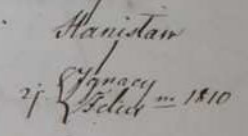 Stanisław
2j { Ignacy
Felix m 1810